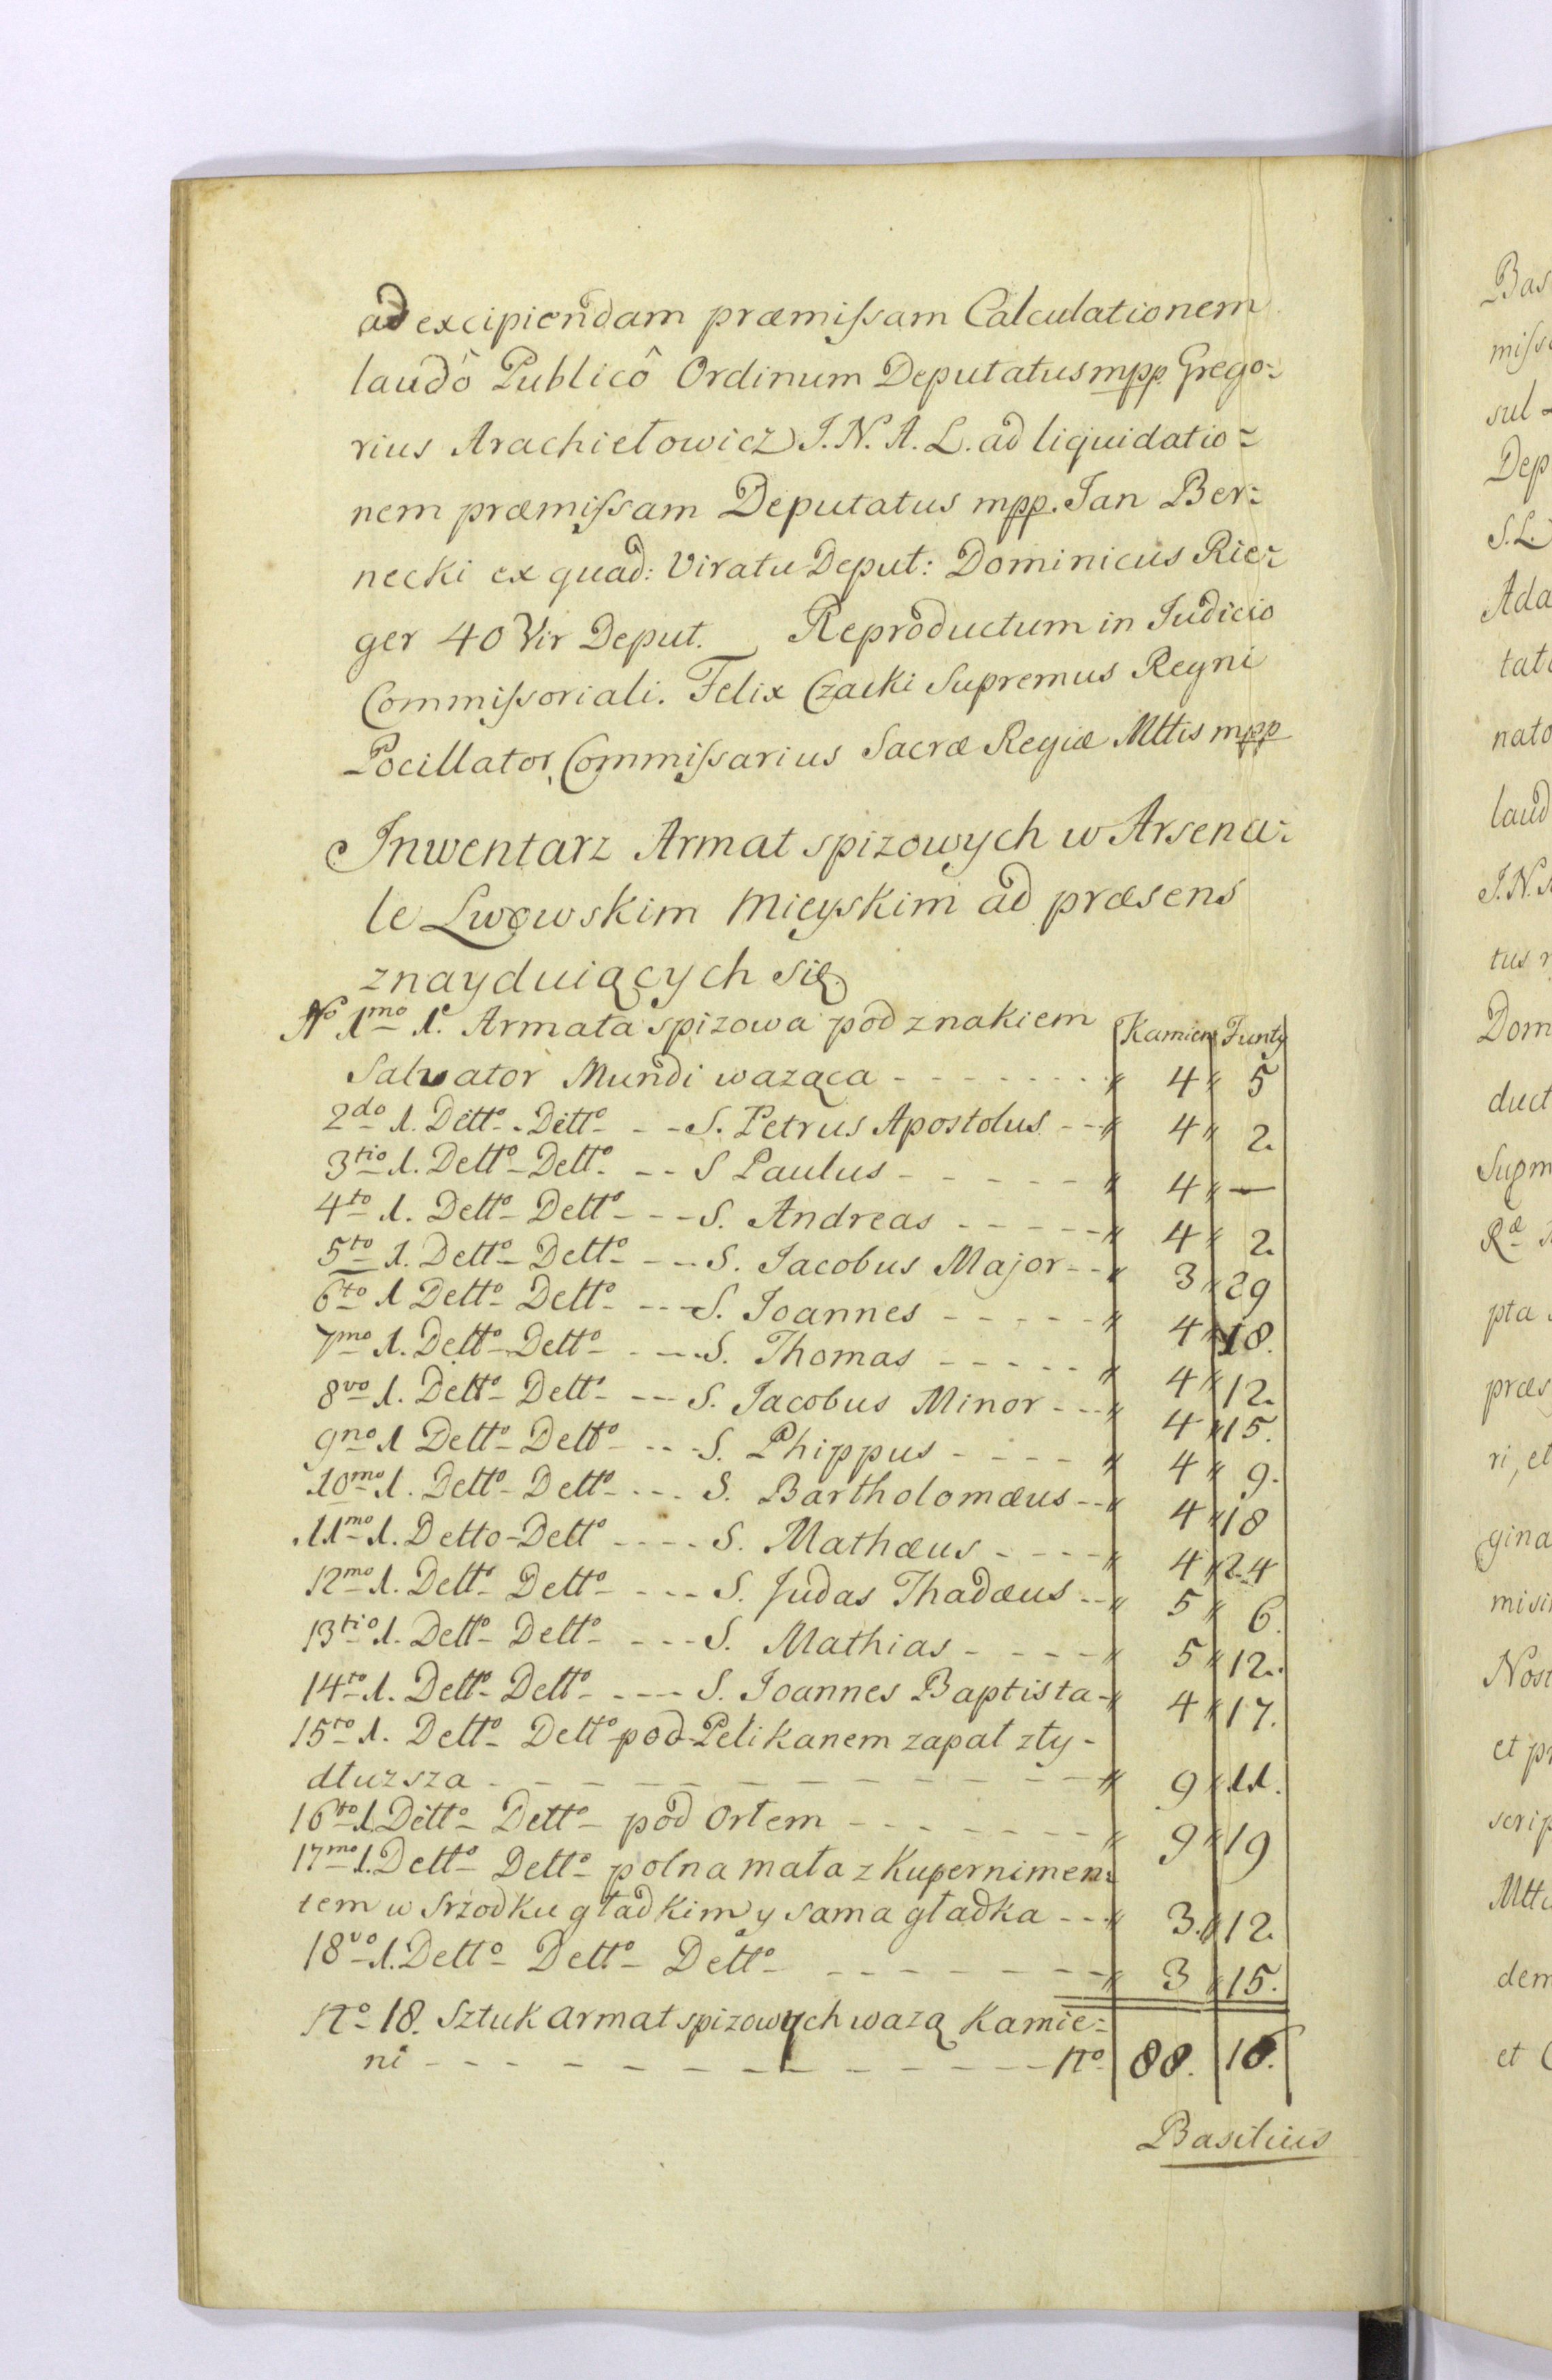 ad excipiendam præmiſsam Calculationem
laudô Publicô Ordinum Deputatus mpp. Grego=
rius Arachiełowicz J. N. A. L. ad liquidatio=
nem præmiſsam Deputatus mpp. Jan Ber=
necki ex quad: Viratu Deput: Dominicus Rie=
ger 40 Vir Deput. Reproductum in Judicio
Commiſsoriali. Felix Czacki Supremus Regni
Pocillator, Commiſsarius Sacræ Regiæ Mttis mpp
Inwentarz Armat spizowych w Arsena=
le Lwowskim Mieyskim ad præsens
znayduiących się.
No 1mo 1. Armata spizowa pod znakiem Kamieni Funty
Salvator Mundi waząca - - - - - - - 4 " 5
2do 1. Ditto - Ditto - - S. Petrus Apostolus - - 4 " 2.
3tio 1. Detto - Detto - - S Paulus - - - - - - 4 " —
4to 1. Detto - Detto - - - S. Andreas - - - - - 4 " 2.
5to 1. Detto - Detto - - - S. Jacobus Major - - 3 " 29
6to 1 Detto - Detto - - - S. Joannes - - - - - 4 " 18.
7mo 1. Detto - Detto - - - S. Thomas - - - - - 4 " 12.
8vo 1. Detto - Detto - - - S. Jacobus Minor - - - 4 " 15.
9no 1 Detto - Detto - - - S. Phippus - - - - 4 " 9.
10mo 1. Detto - Detto - - - S. Bartholomæus - - 4 " 18
11mo 1. Detto - Detto - - - - S. Mathæus - - - - 4 " 24
12mo 1. Detto - Detto - - - S. Judas Thadæus - - 5 " 6.
13tio 1. Detto - Detto - - - S. Mathias - - - - 5 " 12.
14to 1. Detto - Detto - - - S. Joannes Baptista - 4 " 17.
15to 1. Detto - Detto - pod Pelikanem zapał zły -
dłuzsza - - - - - - - - - - - 9 " 11.
16to 1. Ditto - Detto - pod Orłem - - - - - - - 9 " 19
17mo 1. Detto - Detto - polna mała z Kupernimen=
tem w srzodku gładkim y sama gładka - - - 3. " 12.
18vo 1. Detto - Detto - Detto - - - - - - - 3 " 15.
No 18. Sztuk armat spizowych wazą Kamie=
ni - - - - - - - - - - - No 88. 16.
Basilius